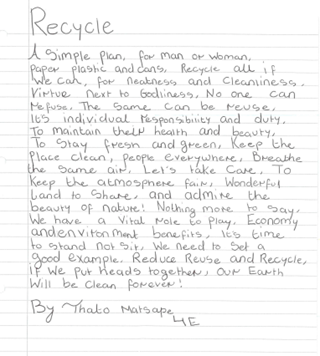 Recycle
A Simple plan, for man or woman,
paper plastic and cans, Recycle all if
we can, for neatness and Cleaniness.
Virtue next to Godliness, No one can
refuse. The same can be reuse,
Its individual responsibility and duty,
To maintain their health and beauty,
To Stay fresh and green, Keep the
Place clean, people everywhere, Breathe
the same air, Let's take care, To
Keep the atmosphere fair, Wonderful
land to Share, and admire the
beauty of nature! Nothing more to say,
We have a Vital role to play. Economy
and environment benefits, it's time
to stand not sit, We need to Set a
good example. Reduce Reuse and Recycle,
if we put heads together, our Earth
will be clean forever!
By Thato Matsape
4E